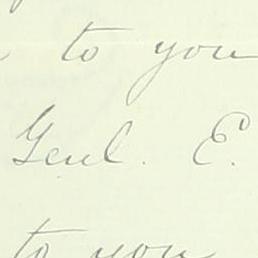 to you
Genl. E.
to you